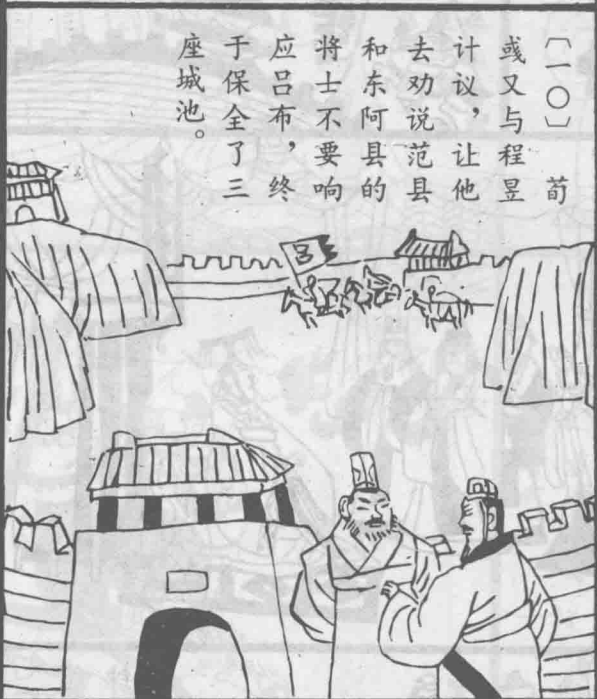 〔一〇〕 荀
彧又与程昱
计议，让他
去劝说范县
和东阿县的
将士不要响
应吕布，终
于保全了三
座城池。
吕